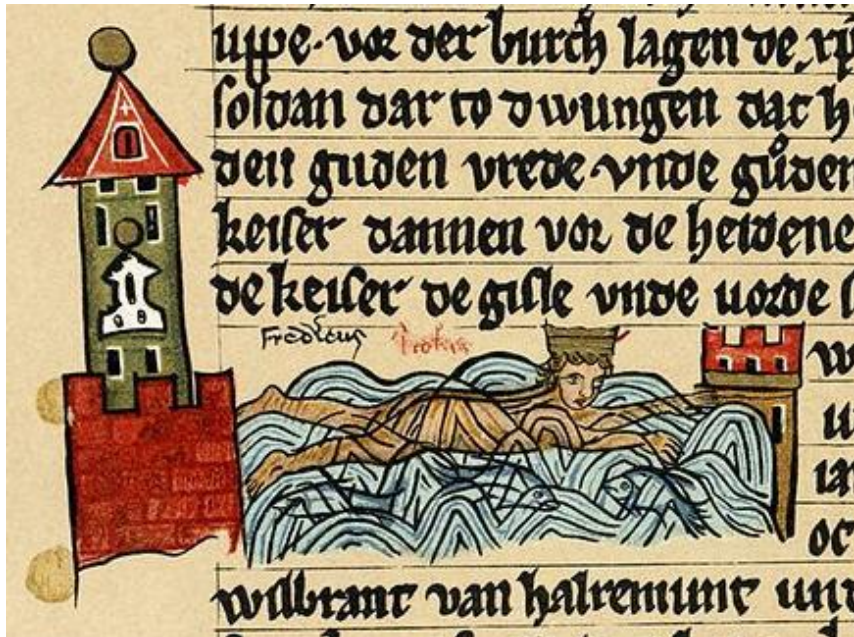 uppe · vor der burch lagen de xp̄
soldan dar to dwungen dat h
den guden vrede · vnde gůden
keiser dannen vor de heidene
de keiser de gisle vnde uorde s
Fredicus
w
u
ia
oc
wilbrant van halremunt und